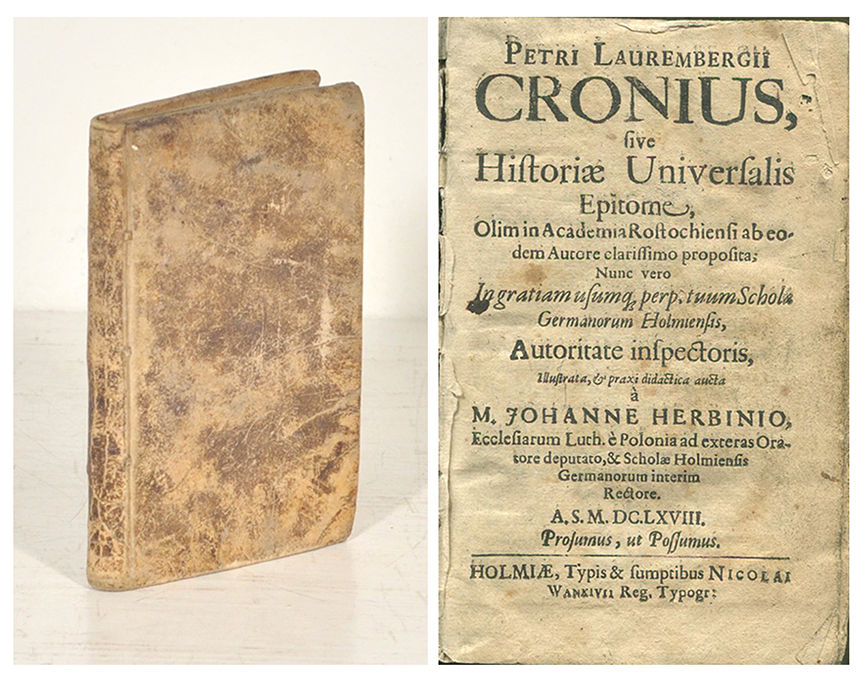 PETRI LAUREMBERGII
CRONIUS,
ſive
Hiſtoriæ Univerſalis
Epitome,
Olim in Academia Roſtochienſi ab eo-
dem Autore clariſſimo propoſita;
Nunc vero
In gratiam uſumq; perp. tuum Scholæ
Germanorum Holmienſis,
Autoritate inſpectoris,
Illuſtrata, & praxi didactica aucta
à
M. JOHANNE HERBINIO,
Eccleſiarum Luth. è Polonia ad exteras Ora-
tore deputato, & Scholæ Holmienſis
Germanorum interim
Rectore.
A. S. M. DC. LXVIII.
Proſumus, ut Poſſumus.
HOLMIÆ, Typis & ſumptibus NICOLAI
WANKIVII Reg. Typogr: